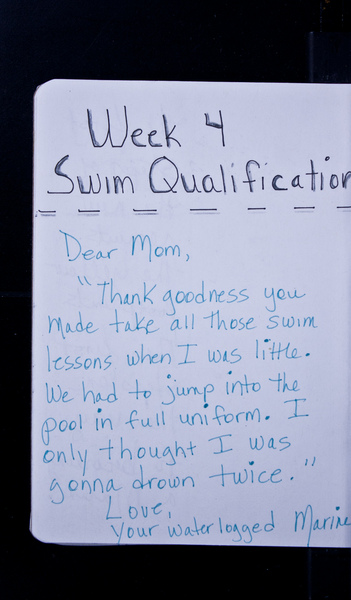 Week 4
Swim Qualification
Dear Mom,
"Thank goodness you
made take all those swim
lessons when I was little.
We had to jump into the
pool in full uniform. I
only thought I was
gonna drown twice."
Love,
Your waterlogged Marine